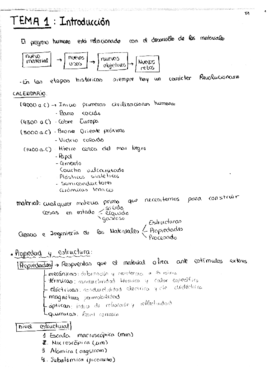 TEMA 1: Introducción
El progreso humano está relacionado con el desarrollo de los materiales
nuevo material → nuevos usos → nuevos objetivos → nuevos retos
- En las etapas históricas siempre hay un carácter Revolucionario
CALENDARIO
(9000 a.C) → Inicio primeras civilizaciones humanas
- Barro cocido
(4300 a.C) → Cobre Europa
(3000 a.C) → Bronce Oriente próximo
- Vidrio colado
(1400 a.C) → Hierro cerca del mar Negro
- Papel
- Cemento
- Caucho vulcanizado
- Plásticos sintéticos
- Semiconductores
material: cualquier materia prima que necesitamos para construir
cosas en estado
sólido
líquido
gaseoso
Ciencia e Ingeniería de los Materiales
Estructuras
Propiedades
Procesado
• Propiedad y estructura:
Propiedades → Respuestas que el material ante estímulos externos
- mecánicas:
- térmicas: conductividad térmica y calor específico
- eléctricas: conductividad eléctrica y cte dieléctrica
- magnéticas: permeabilidad
- ópticas: índice de refracción y reflectividad
- químicas:
Nivel estructural
1 Escala macroscópica (mm)
2 Microscópica (µm)
3 Atómica (angstrom)
4 Subatómica